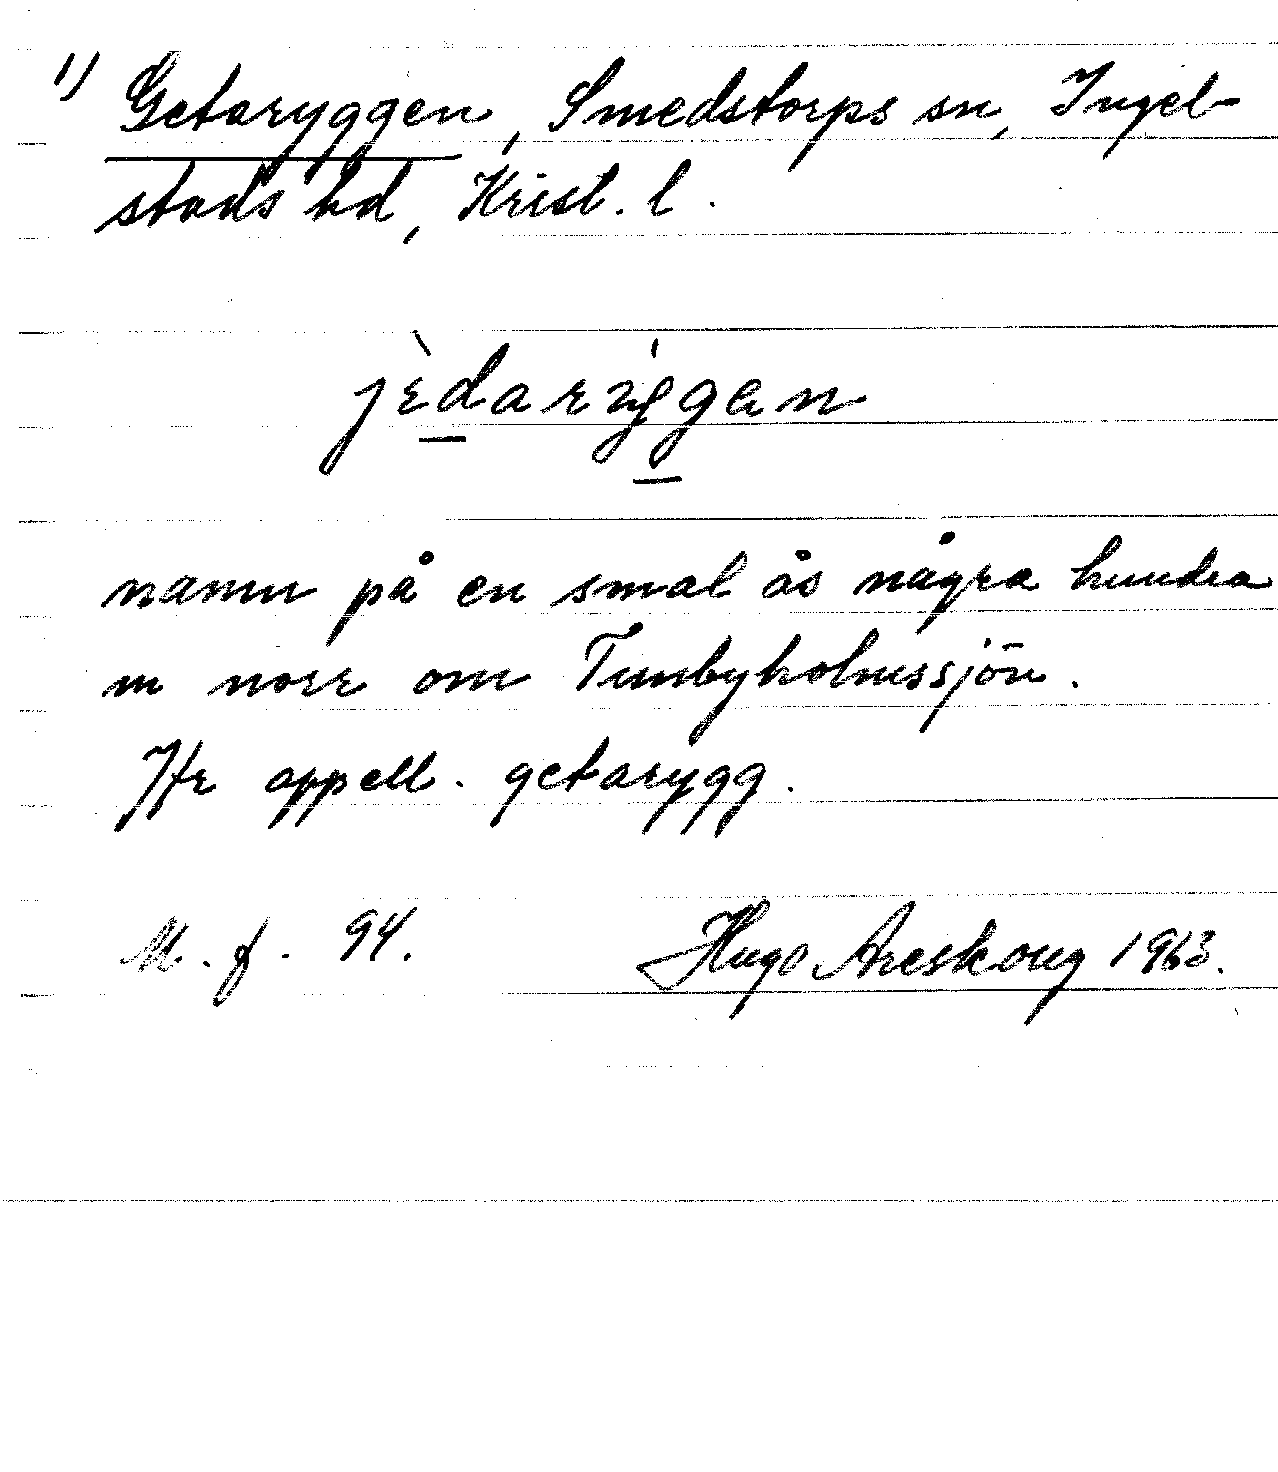 1) Getaryggen, Smedstorps sn, Ingel-
stads hd, Krist. l.
jɛ̀dariggan
namn på en smal ås några hundra
m norr om Tunbyholmssjön.
Jfr appell. getarygg.
M. f. 94. Hugo Areskoug 1963.